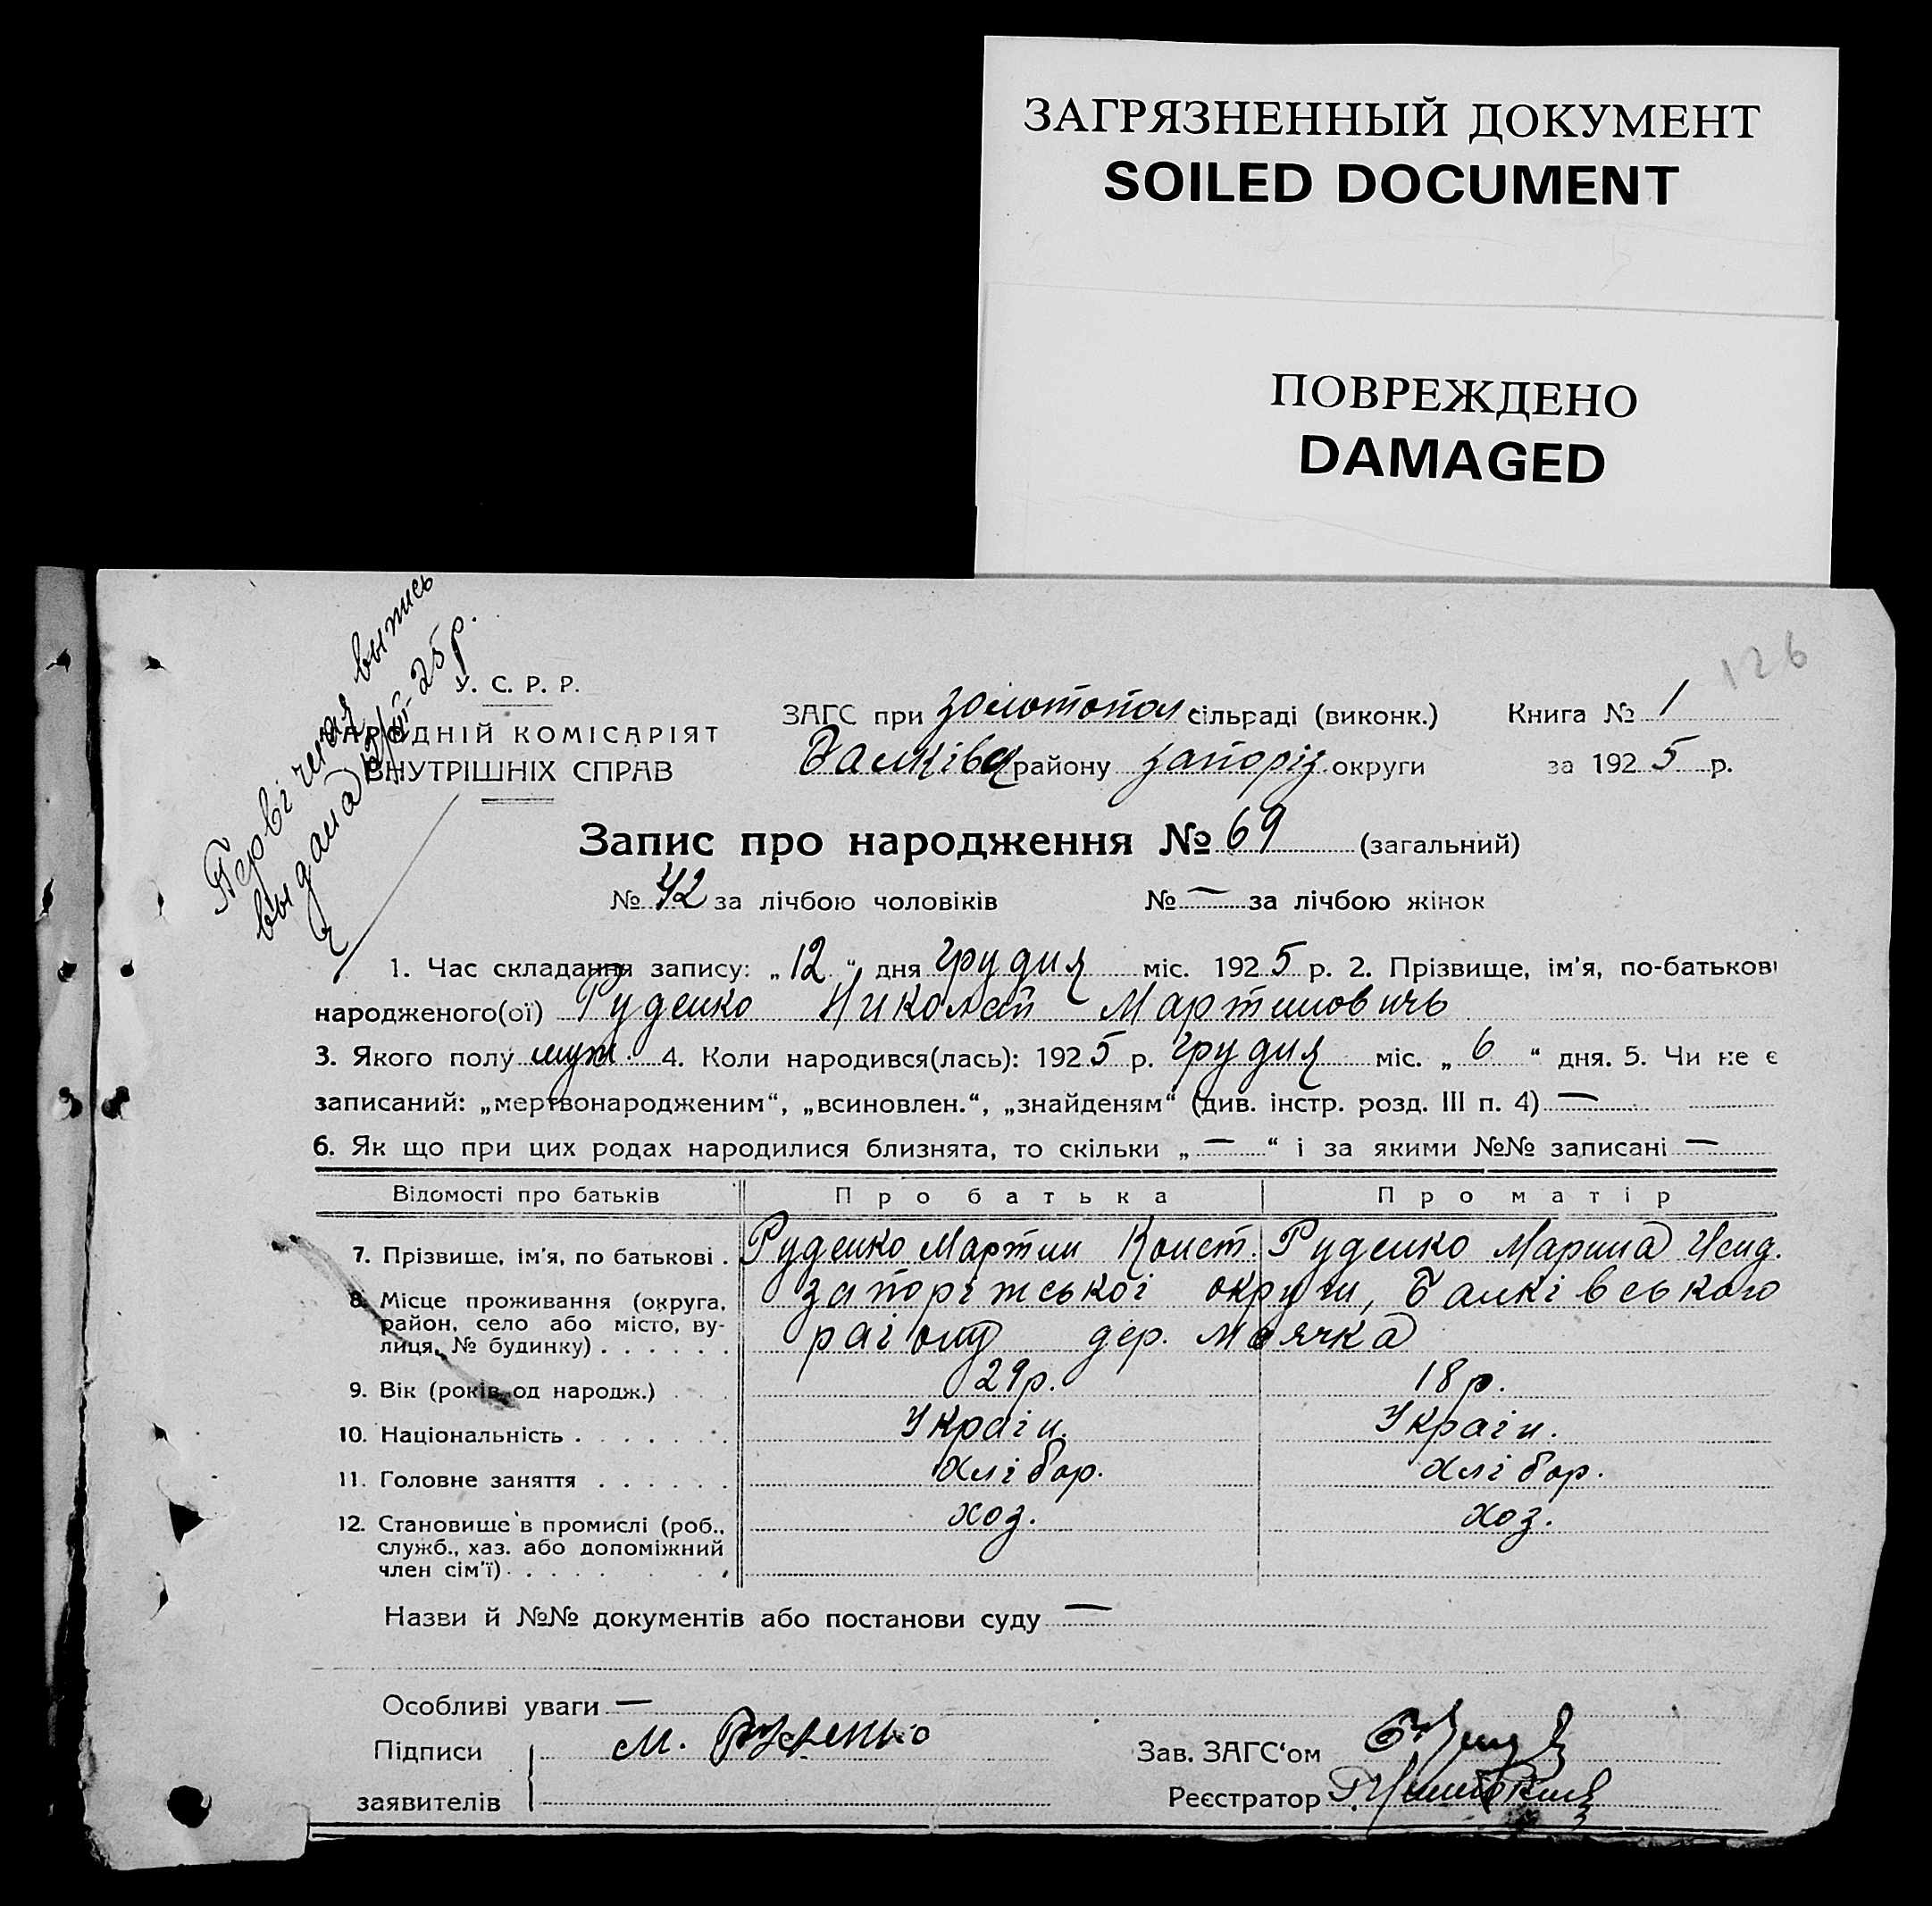 ЗАГРЯЗНЕННЫЙ ДОКУМЕНТ
SOILED DOCUMENT
ПОВРЕЖДЕНО
DAMAGED
126
Перві чная выпись
выдана 25 р.
У. С. Р. Р.
НАРОДНІЙ КОМІСАРІЯТ
ВНУТРІШНІХ СПРАВ
ЗАГС при Золотопол. сільраді (виконк.) Книга № 1
Балків району Запоріз. округи за 1925 р.
Запис про народження № 69 (загальний)
№ 42 за лічбою чоловіків № — за лічбою жінок
1. Час складання запису: „12“ дня грудня міс. 1925 р. 2. Прізвище, ім'я, по-батькові
народженого(ої) Руденко Николай Мартинович
3. Якого полу муж. 4. Коли народився(лась): 1925 р. грудня міс. „6“ дня. 5. Чи не є
записаний: „мертвонародженим“, „всиновлен.“, „знайденям“ (див. інстр. розд. III п. 4) —
6. Як що при цих родах народилися близнята, то скільки „—“ і за якими №№ записані —
Відомості про батьків Про батька Про матір
7. Прізвище, ім'я, по батькові . Руденко Мартин Конст. Руденко Марина Исид.
8. Місце проживання (округа, район, село або місто, ву-лиця, № будинку) . . . . . . Запоріжської округи, Балківського
раіону дер. Маячка
9. Вік (років од народж.) . . . 29 р. 18 р.
10. Національність . . . . . . . Украін. Украін.
11. Головне заняття . . . . . . хлібор. хлібор.
12. Становище в промислі (роб., служб., хаз. або допоміжний член сім'ї) . . . . . . хоз. хоз.
Назви й №№ документів або постанови суду —
Особливі уваги —
Підписи М. Руденко Зав. ЗАГС'ом
заявителів Реєстратор